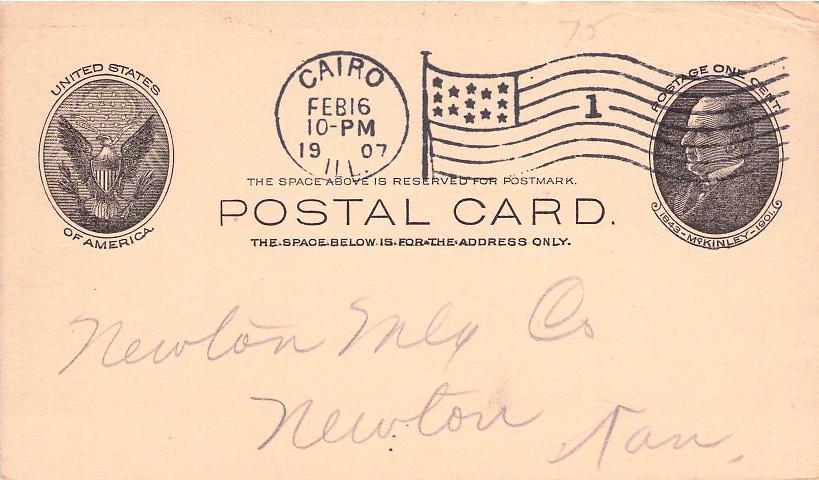 75
UNITED STATES
OF AMERICA.
CAIRO
FEB 16
10-PM
19 07
ILL.
1
POSTAGE ONE CENT.
1843-McKINLEY-1901.
THE SPACE ABOVE IS RESERVED FOR POSTMARK.
POSTAL CARD.
THE SPACE BELOW IS FOR THE ADDRESS ONLY.
Newton Mfg Co
Newton Kan.